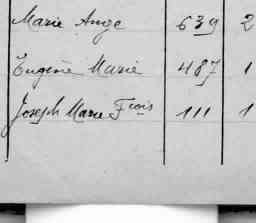 Marie Ange 639 2
Eugène Marie 487 1
Joseph Marie Fçois 111 1